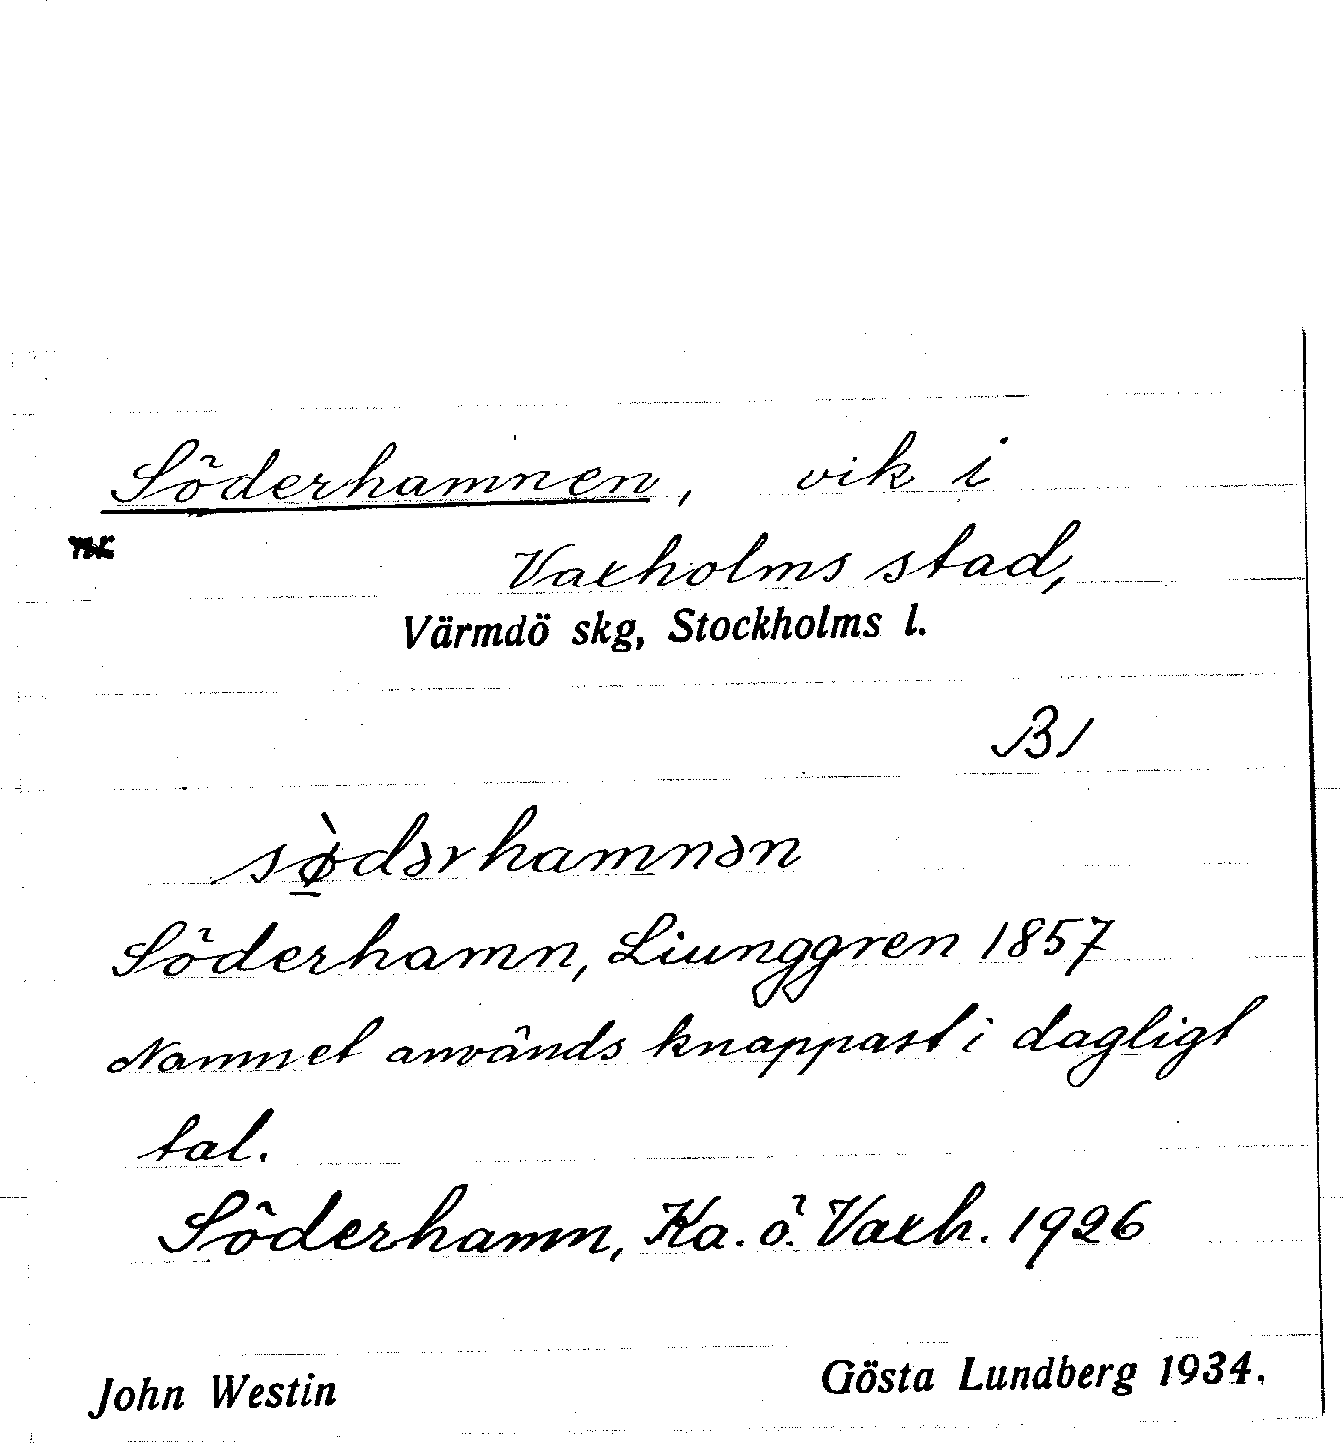 Söderhamnen, vik i
Vaxholms stad,
Värmdö skg, Stockholms l.
B1
sø̀dərhamnən
Söderhamn, Liunggren 1857
Namnet används knappast i dagligt
tal.
Söderhamn, Ka. ö. Vaxh. 1926
John Westin
Gösta Lundberg 1934.